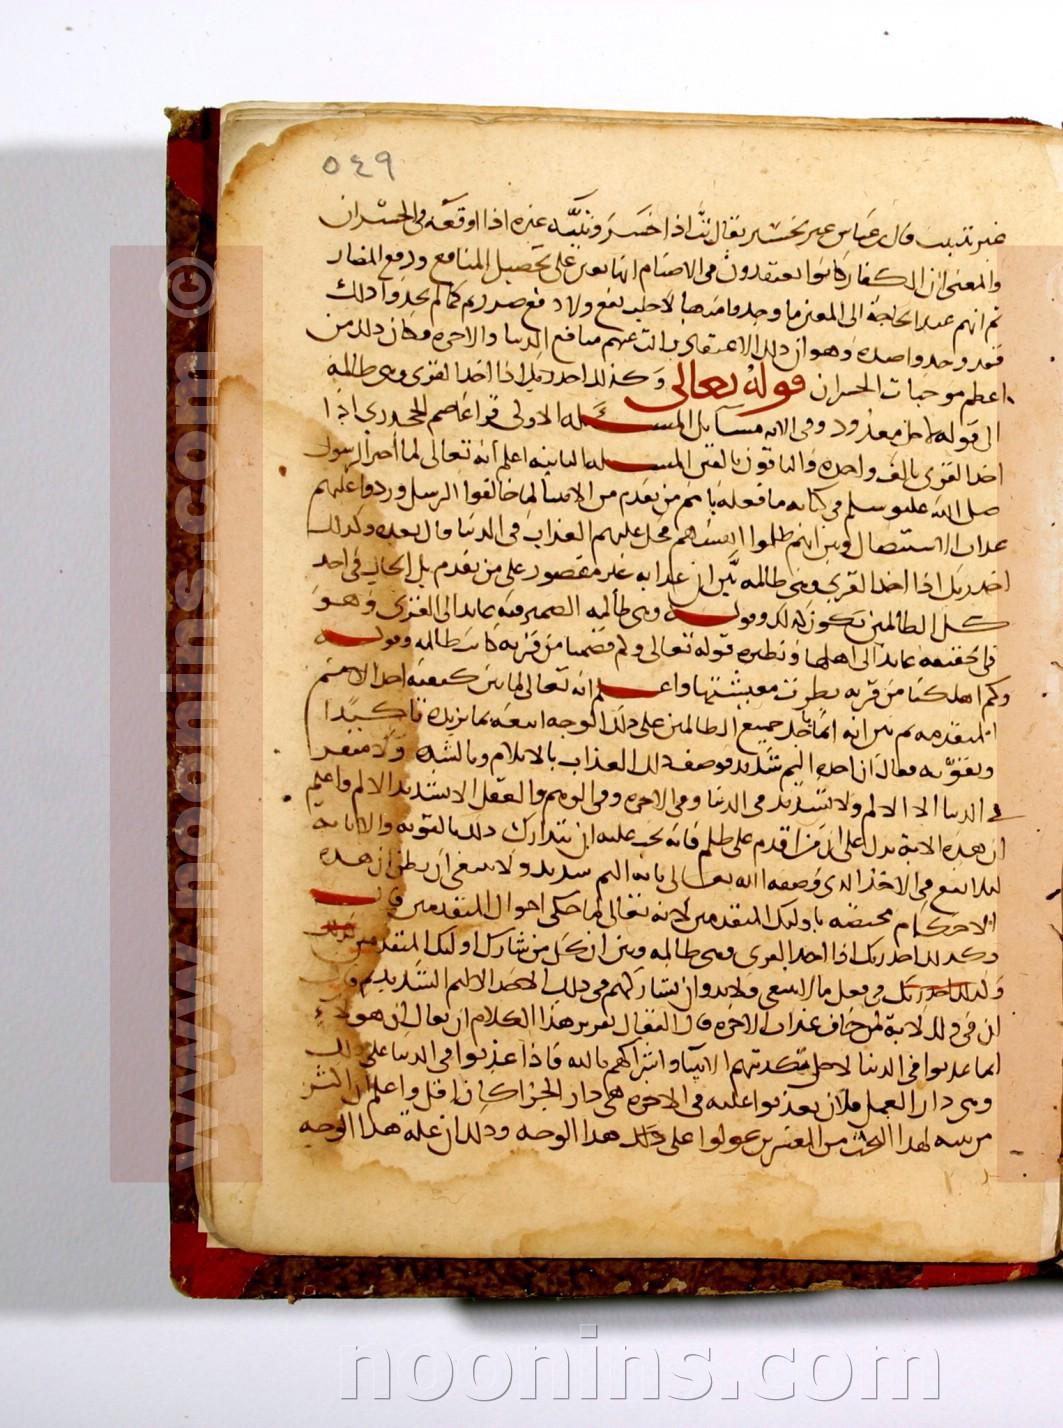 ٥٤٩
غير تتبيب قال ابن عباس غير تخسير يقال تب اذا خسر وتببه غيره اذا اوقعه في الخسران
والمعنى ان الكفار كانوا يعتقدون في الاصنام انها تعين على تحصيل المنافع ودفع المضار
ثم انهم عند الحاجة الى المعين ما وجدوا منها لا جلب نفع ولا دفع ضرر ثم كما لم يجدوا ذلك
فقد وجدوا ضده وهو ان ذلك الاعتقاد زالت عنهم منافع الدنيا والاخره فكان ذلك من
اعظم موجبات الخسران قوله تعالى وكذلك اخذ ربك اذا اخذ القرى وهي ظالمه
الى قوله لاجل معدود وفي الايه مسايل المسئله الاولى قرا عاصم الجحدري اذا
اخذ القرى بالف واحده والباقون بالفين المسله الثانيه اعلم انه تعالى لما اخبر الرسول
صلى الله عليه وسلم في كتابه ما فعله بامم من تقدم من الانبيا لما خالفوا الرسل وردوا عليهم
عذاب الاستئصال وبين انهم ظلموا انفسهم فحل عليهم العذاب في الدنيا قال بعده وكذلك
اخذ ربك اذا اخذ القرى وهي ظالمه بين ان عذابه غير مقصور على من تقدم بل الحال في اخذ
كل الظالمين تكون كذلك وقوله وهي ظالمه الضمير فيه عايد الى القرى وهو
في الحقيقه عايد الى اهلها ونظيره قوله تعالى وكم قصمنا من قريه كانت ظالمه وقوله
وكم اهلكنا من قريه بطرت معيشتها واعلم انه تعالى لما بين كيفيه اخذ الامم
المتقدمه ثم بين انه انما ياخذ جميع الظالمين على ذلك الوجه اتبعه بما يزيده تاكيدا
وتقويه فقال ان اخذه اليم شديد فوصف ذلك العذاب بالايلام وبالشده ولا منغص
في الدنيا الا الالم ولا تشديد في الدنيا وفي الاخره وفي الوهم والعقل الا تشديد الالم واعلم
ان هذه الاية تدل على ان من اقدم على ظلم فانه يجب عليه ان يتدارك ذلك بالتوبه والانابه
ليلا يقع في الاخذ الذي وصفه الله تعالى بانه اليم شديد ولا ينبغي ان يظن ان هذه
الاحكام مختصه باوليك المتقدمين لانه تعالى لما حكى احوال المتقدمين قال
وكذلك اخذ ربك اذا اخذ القرى وهي ظالمه وبين ان كل من شارك اوليك المتقدمين
في فعل ما لا ينبغي فلا بد وان يشاركهم في ذلك الاخذ الاليم الشديد ثم قال
ان في ذلك لاية لمن خاف عذاب الاخره قال القفال تقرير هذا الكلام ان يقال ان هولاء
انما عذبوا في الدنيا لاجل تكذيبهم الانبيا واشراكهم بالله فاذا عذبوا في الدنيا على ذلك
وهي دار العمل فلان يعذبوا عليه في الاخره هي دار الجزا كان اقل واعلم ان
من تنبه لهذا البحث من المفسرين عولوا على ذلك هذا الوجه وذلك ان على هذا الوجه
www.noonins.com ©
noonins.com